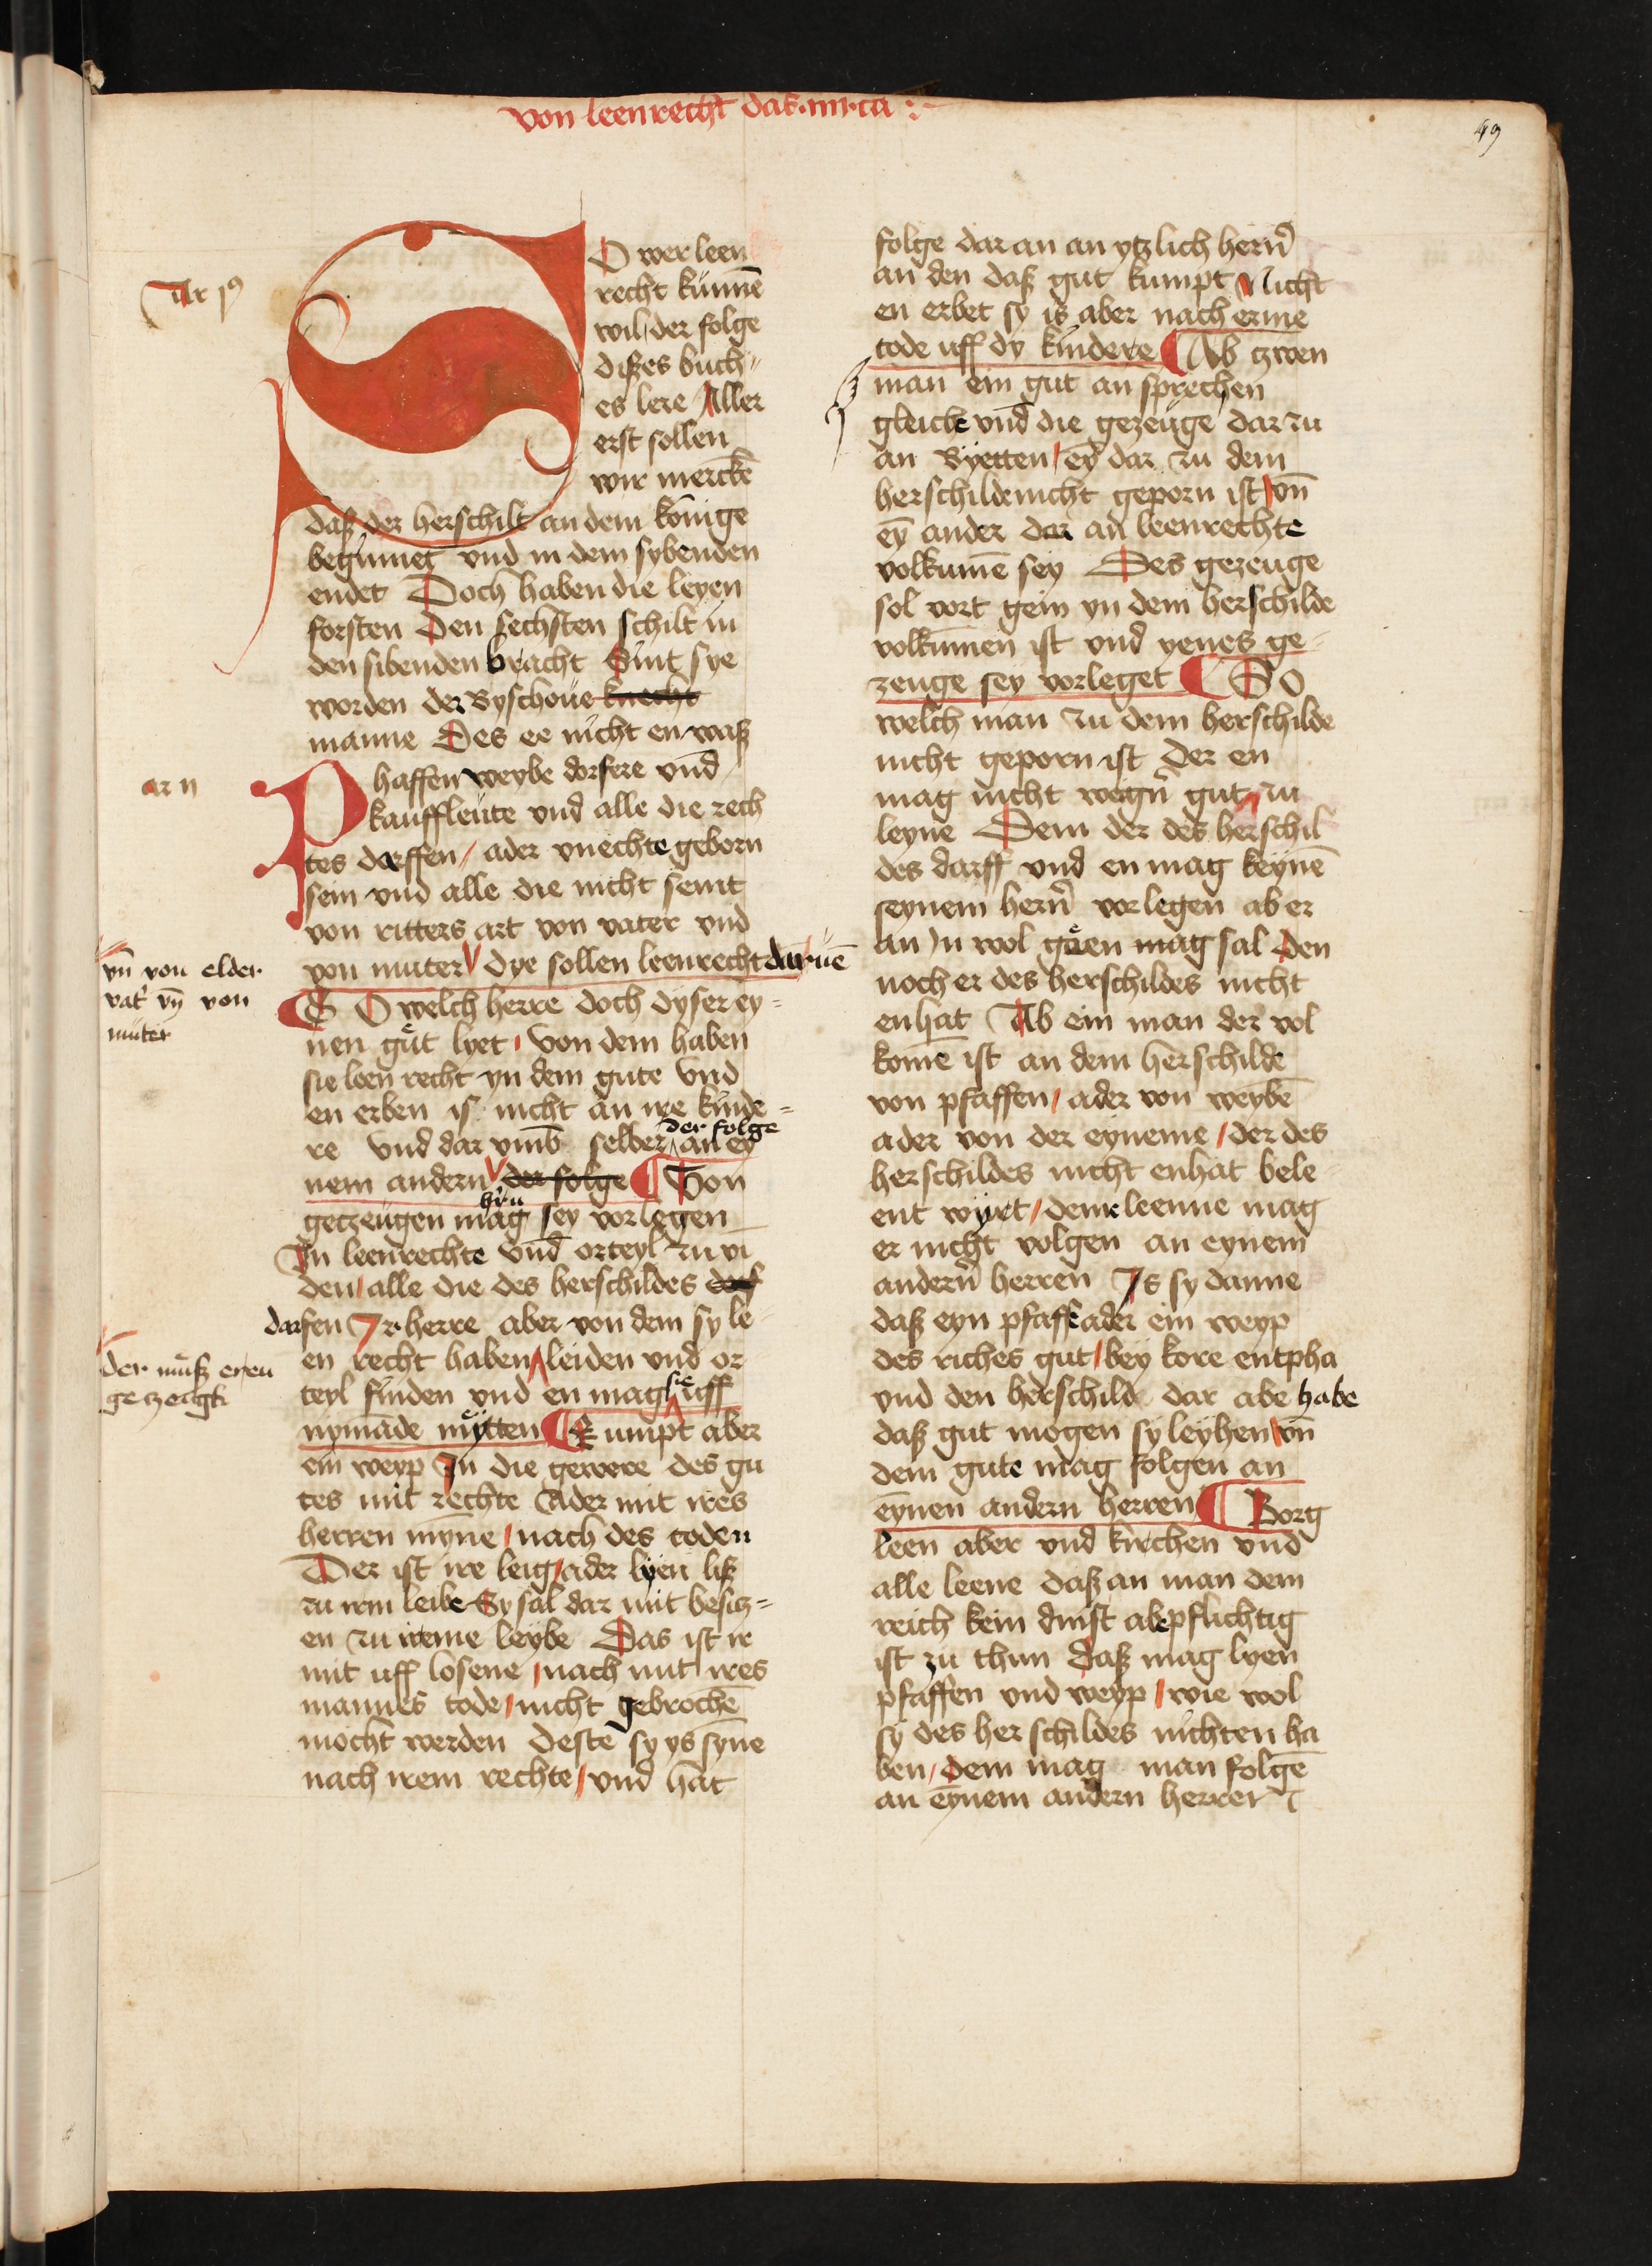 von leenrecht das .iiii. ca :
49
Ar pꝰ
SO wer leen
recht kunnē
wil der folge
diszes buch
es lere Aller
erst sollen
wir merckē
dasz der herschilt an dem konige
begunnet vnd in dem sybenden
endet Doch haben die leyen
forsten Den sechsten schilt in
den sibenden bracht Sint sye
worden der Byschoue knecht
manne Des ee nicht en wasz
ar ii
Phaffen weybe dorfere vnd
kauffleute vnd alle die rech
tes darffen ader vnechte geborn
sein vnd alle die nicht seint
von ritters art von vater vnd
von muter dye sollen leenrecht daruē
vn̄ von elder
vat' vn̄ von
muter
SO welch herre doch dyser ey
nen gut lyet von dem haben
sie leen recht yn dem gute vnd
en erben is nicht an ire kinde
re vnd dar vmb selber der folge an ey
nem andern der folge Von
getzeugen mag hin sey vorlegen
In leenrechte vnd orteyl zu vi
den alle die des herschildes darf
darfen Ir herre aber von dem sy le
en recht haben leiden vnd or
der musz eren
getzeugk
teyl finden vnd en mag sie uff
nymāde mytten Kumpt aber
ein weyp In die gewere des gu
tes mit rechte Ader mit ires
herren myne nach des toden
Der ist ire leig ader lyen lisz
zu irm leibe Sy sal dar mit besitz
en zu ireme leybe Das ist ir
mit uff losene nach mit ires
mannes tode nicht gebrochē
mocht werden deste sy ys syne
nach irem rechte vnd hat
folge dar an an ytzlich hern̄
an den dasz gut kumpt Nicht
en erbet sy is aber nach erme
tode uff dy kindere Ab tzwen
man ein gut an sprechen
gleich vnd die gezeuge dar zu
an Byetten ey dar zu dem
herschilde nicht geporn ist vn̄
ey ander dar an leenrechte
volkumē sey Des gezeuge
sol vort gein yn dem herschilde
volkumen ist vnd yenes ge
zeuge sey vorleget SO
welch man zu dem herschilde
nicht geporn ist der en
mag nicht wegn̄ gut zu
leyne Dem der des herschil
des darff vnd en mag keynē
seynem hern̄ vorlegen ab er
an In wol geen mag sal den
noch er des herschildes nicht
enhat Ab ein man der vol
komē ist an dem herschilde
von pfaffen ader von weybē
ader von der eyneme der des
herschildes nicht enhat bele
ent wyret deme leenne mag
er nicht volgen an eynem
andern̄ herren Is sy danne
dasz eyn pfaffe ader ein weyp
des riches gut bey kore entpha
vnd den herschild dar abe habe
dasz gut mogen sy leyhen vn̄
dem gute mag folgen an
eynen andern herren Borg
leen aber vnd kirchen vnd
alle leene dasz an man dem
reich kein dinst abepflichtig
ist zu thun dasz mag lyen
pfaffen vnd weyp wie wol
sy des herschildes nichten ha
ben dem mag man folgē
an eynem andern herrer